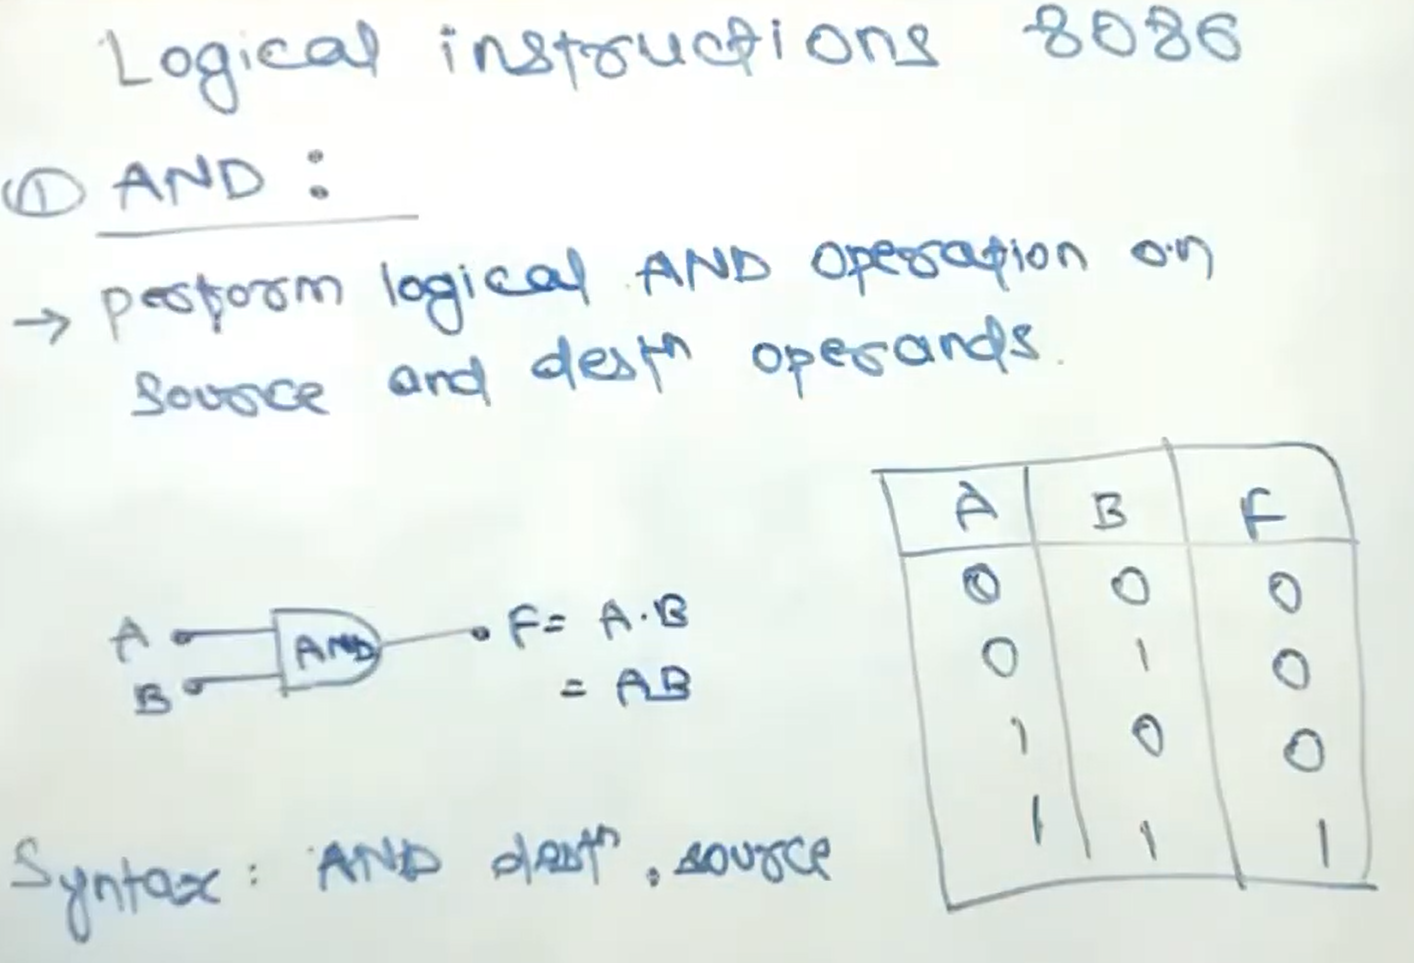 Logical instructions 8086
① AND :
→ perform logical AND operation on
source and destn operands.
A B F
0 0 0
0 1 0
1 0 0
1 1 1
A
B
AND
F = A.B
= AB
Syntax : AND destn, source